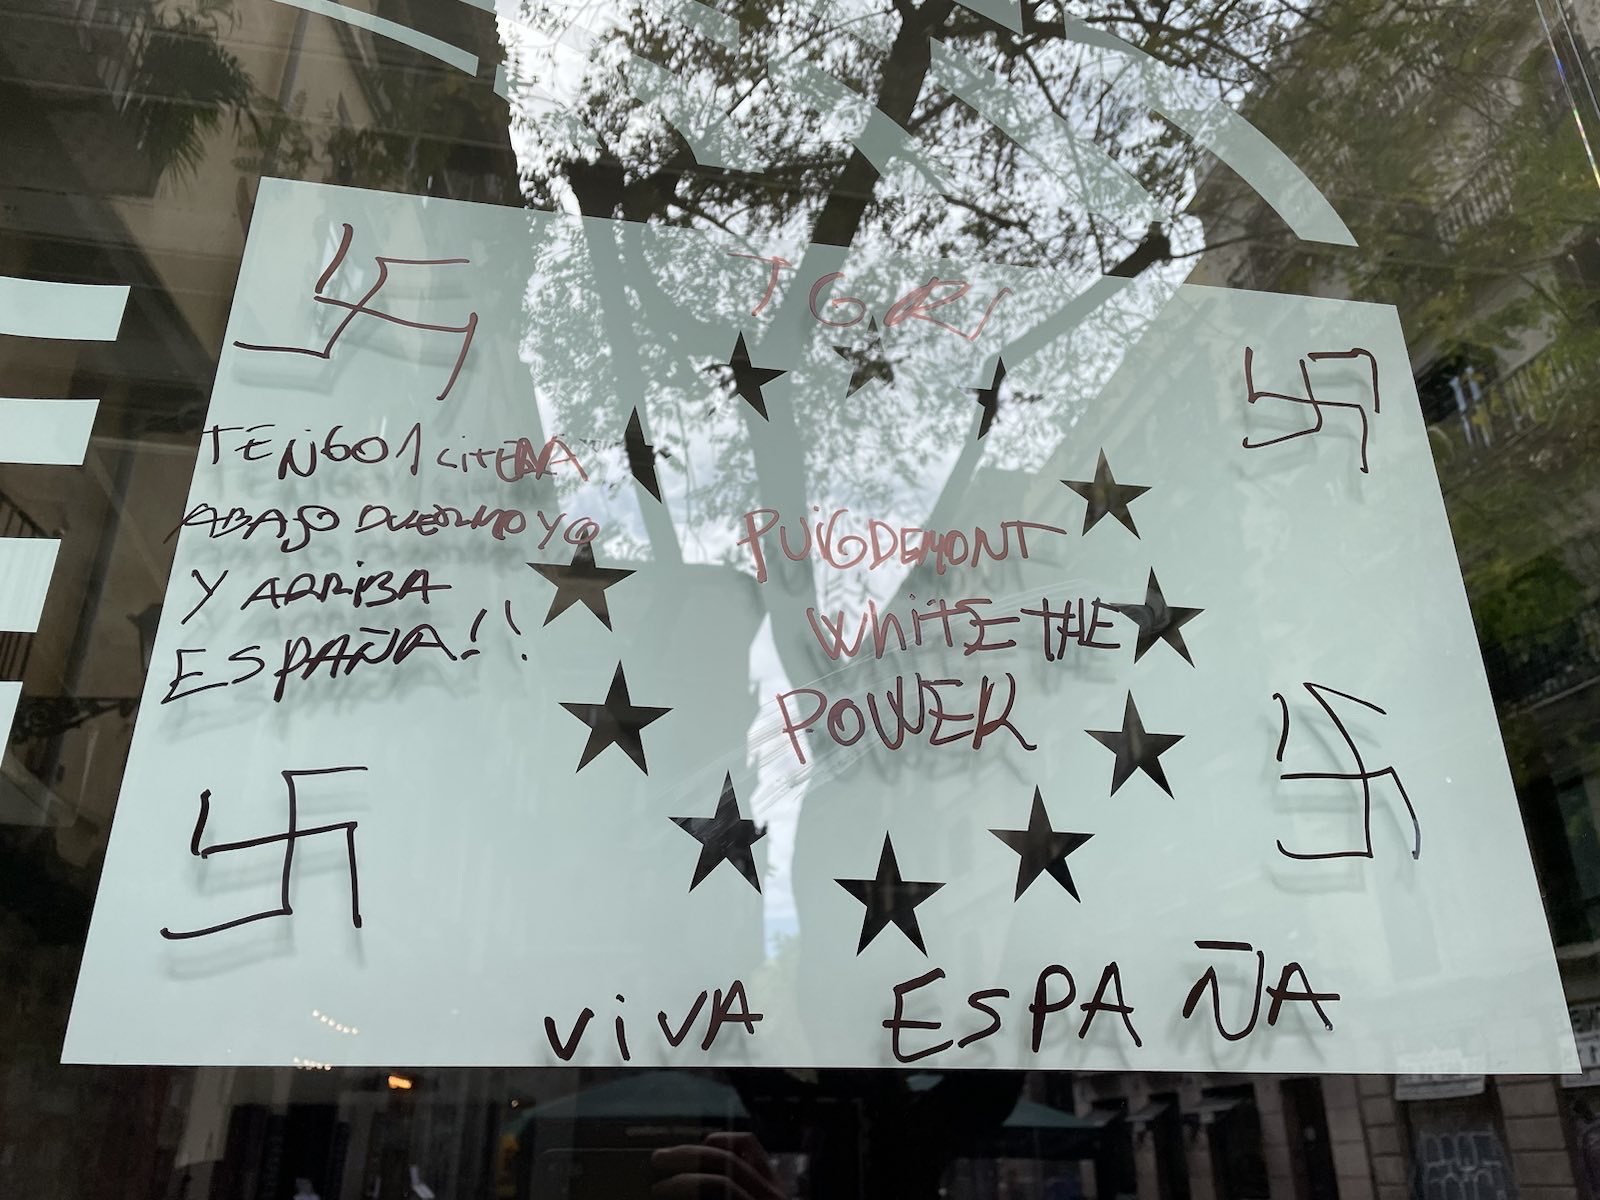 TENGO 1 LITERA
ABAJO DUERMO YO
Y ARRIBA
ESPAÑA!!
PUiGDEMONT
WhiTE THE
POWER
ViVA ESPAÑA